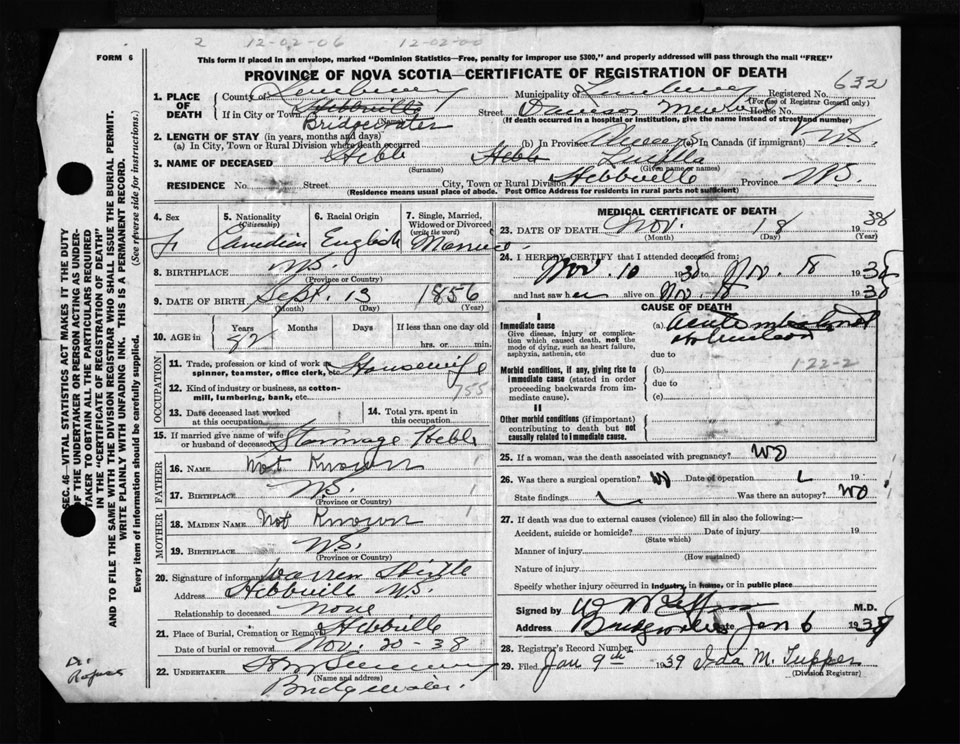 2 12-02-06 12-02-00
FORM 6
This form if placed in an envelope, marked "Dominion Statistics—Free, penalty for improper use $300," and properly addressed will pass through the mail "FREE"
PROVINCE OF NOVA SCOTIA—CERTIFICATE OF REGISTRATION OF DEATH
632
1. PLACE OF DEATH County of Lunenburg Municipality of Lunenburg Registered No.
(For use of Registrar General only)
If in City or Town Hebbville Street House No.
Bridgewater (Name) (If death occurred in a hospital or institution, give the name instead of street and number)
2. LENGTH OF STAY (in years, months and days)
(a) In City, Town or Rural Division where death occurred (b) In Province Always (c) In Canada (if immigrant) N.S.
3. NAME OF DECEASED Hebb Hebb Luella
(Surname) (Given name or names)
RESIDENCE No. Street City, Town or Rural Division Hebbville Province N.S.
(Residence means usual place of abode. Post Office Address for residents in rural parts not sufficient)
4. Sex 5. Nationality (Citizenship) 6. Racial Origin 7. Single, Married, Widowed or Divorced (write the word)
F Canadian English Married
8. BIRTHPLACE N.S.
(Province or Country)
9. DATE OF BIRTH Sept. 13 1856
(Month) (Day) (Year)
10. AGE in Years Months Days If less than one day old
82 hrs. or min.
OCCUPATION
11. Trade, profession or kind of work as spinner, teamster, office clerk, etc. Housewife
12. Kind of industry or business, as cotton-mill, lumbering, bank, etc. 755
13. Date deceased last worked at this occupation
14. Total yrs. spent in this occupation
15. If married give name of wife or husband of deceased Hebb
FATHER
16. NAME Not Known
17. BIRTHPLACE N.S.
(Province or Country)
MOTHER
18. MAIDEN NAME Not Known
19. BIRTHPLACE N.S.
(Province or Country)
20. Signature of informant Warren
Address Hebbville N.S.
Relationship to deceased None
21. Place of Burial, Cremation or Removal Hebbville
Date of burial or removal Nov. 20-38
22. UNDERTAKER
(Name and address)
Bridgewater.
MEDICAL CERTIFICATE OF DEATH
23. DATE OF DEATH Nov. 18 1938
(Month) (Day) (Year)
24. I HEREBY CERTIFY that I attended deceased from:
Nov. 10 1938 to Nov. 18 1938
and last saw her alive on Nov. 18 1938
CAUSE OF DEATH
I
Immediate cause (a) Acute
Give disease, injury or complication which caused death, not the mode of dying, such as heart failure, asphyxia, asthenia, etc
due to
1-22-2
Morbid conditions, if any, giving rise to immediate cause (stated in order proceeding backwards from immediate cause). (b)
due to
(c)
II
Other morbid conditions (if important) contributing to death but not causally related to immediate cause.
25. If a woman, was the death associated with pregnancy? No
26. Was there a surgical operation? No Date of operation 19
State findings Was there an autopsy? No
27. If death was due to external causes (violence) fill in also the following:—
Accident, suicide or homicide? Date of injury 19
(State which)
Manner of injury
(How sustained)
Nature of injury
Specify whether injury occurred in industry, in home, or in public place
Signed by M.D.
Address Bridgewater Date Jan 6 1939
28. Registrar's Record Number
29. Filed Jan 9th 1939 Ida M. Tupper
(Division Registrar)
SEC. 46—VITAL STATISTICS ACT MAKES IT THE DUTY OF THE UNDERTAKER OR PERSON ACTING AS UNDERTAKER TO OBTAIN ALL THE PARTICULARS REQUIRED IN THE "CERTIFICATE OF REGISTRATION OF DEATH" AND TO FILE THE SAME WITH THE DIVISION REGISTRAR WHO SHALL ISSUE THE BURIAL PERMIT.
WRITE PLAINLY WITH UNFADING INK. THIS IS A PERMANENT RECORD.
Every item of information should be carefully supplied. (See reverse side for instructions.)